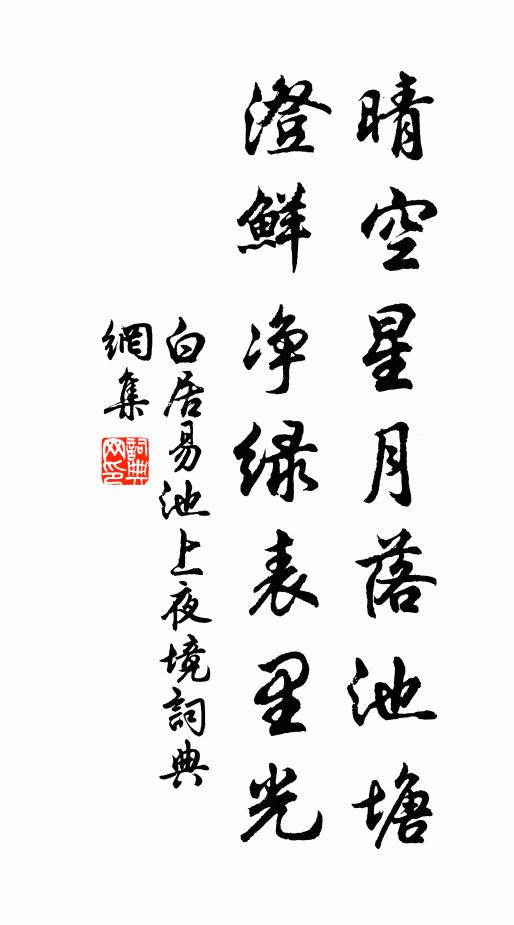 晴空星月落池塘
澄鮮净緑表里光
白居易池上夜境詞典
網集
詞典网印